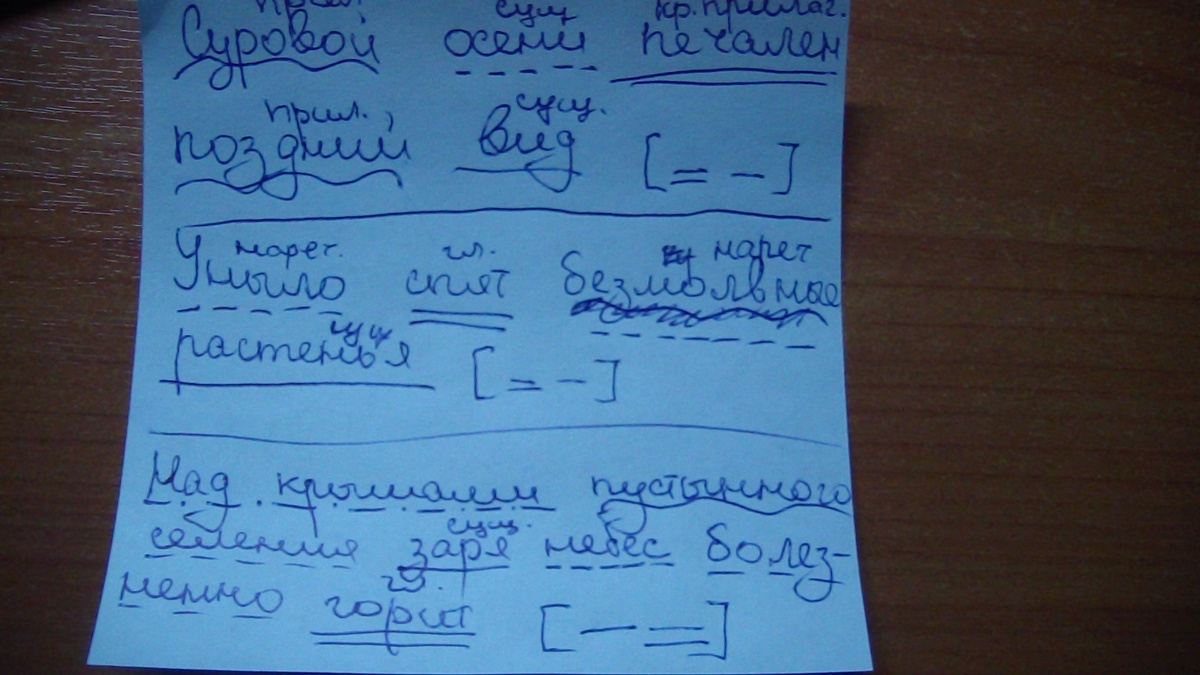 прил. сущ кр.прилаг.
Суровой осени печален
прил., сущ.
поздний вид [= –]
нареч. гл. нареч
Уныло спят безмолвные
сущ
растенья [= –]
Над крышами пустынного
сущ.
селения заря небес болез-
гл.
ненно горит [– =]